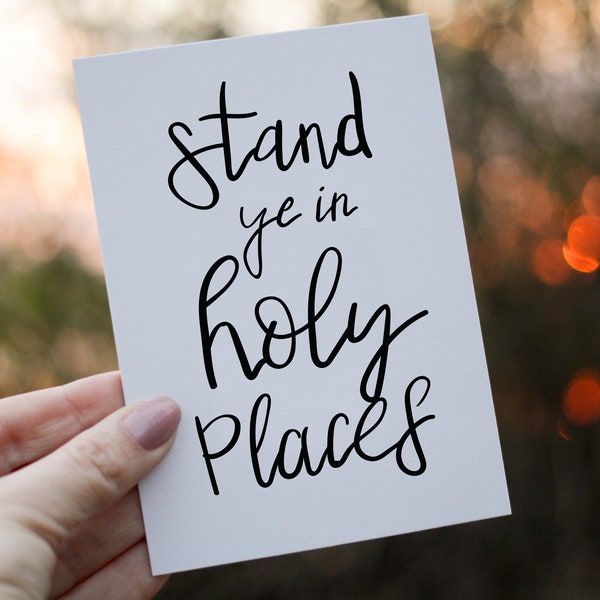 stand
ye in
holy
Places